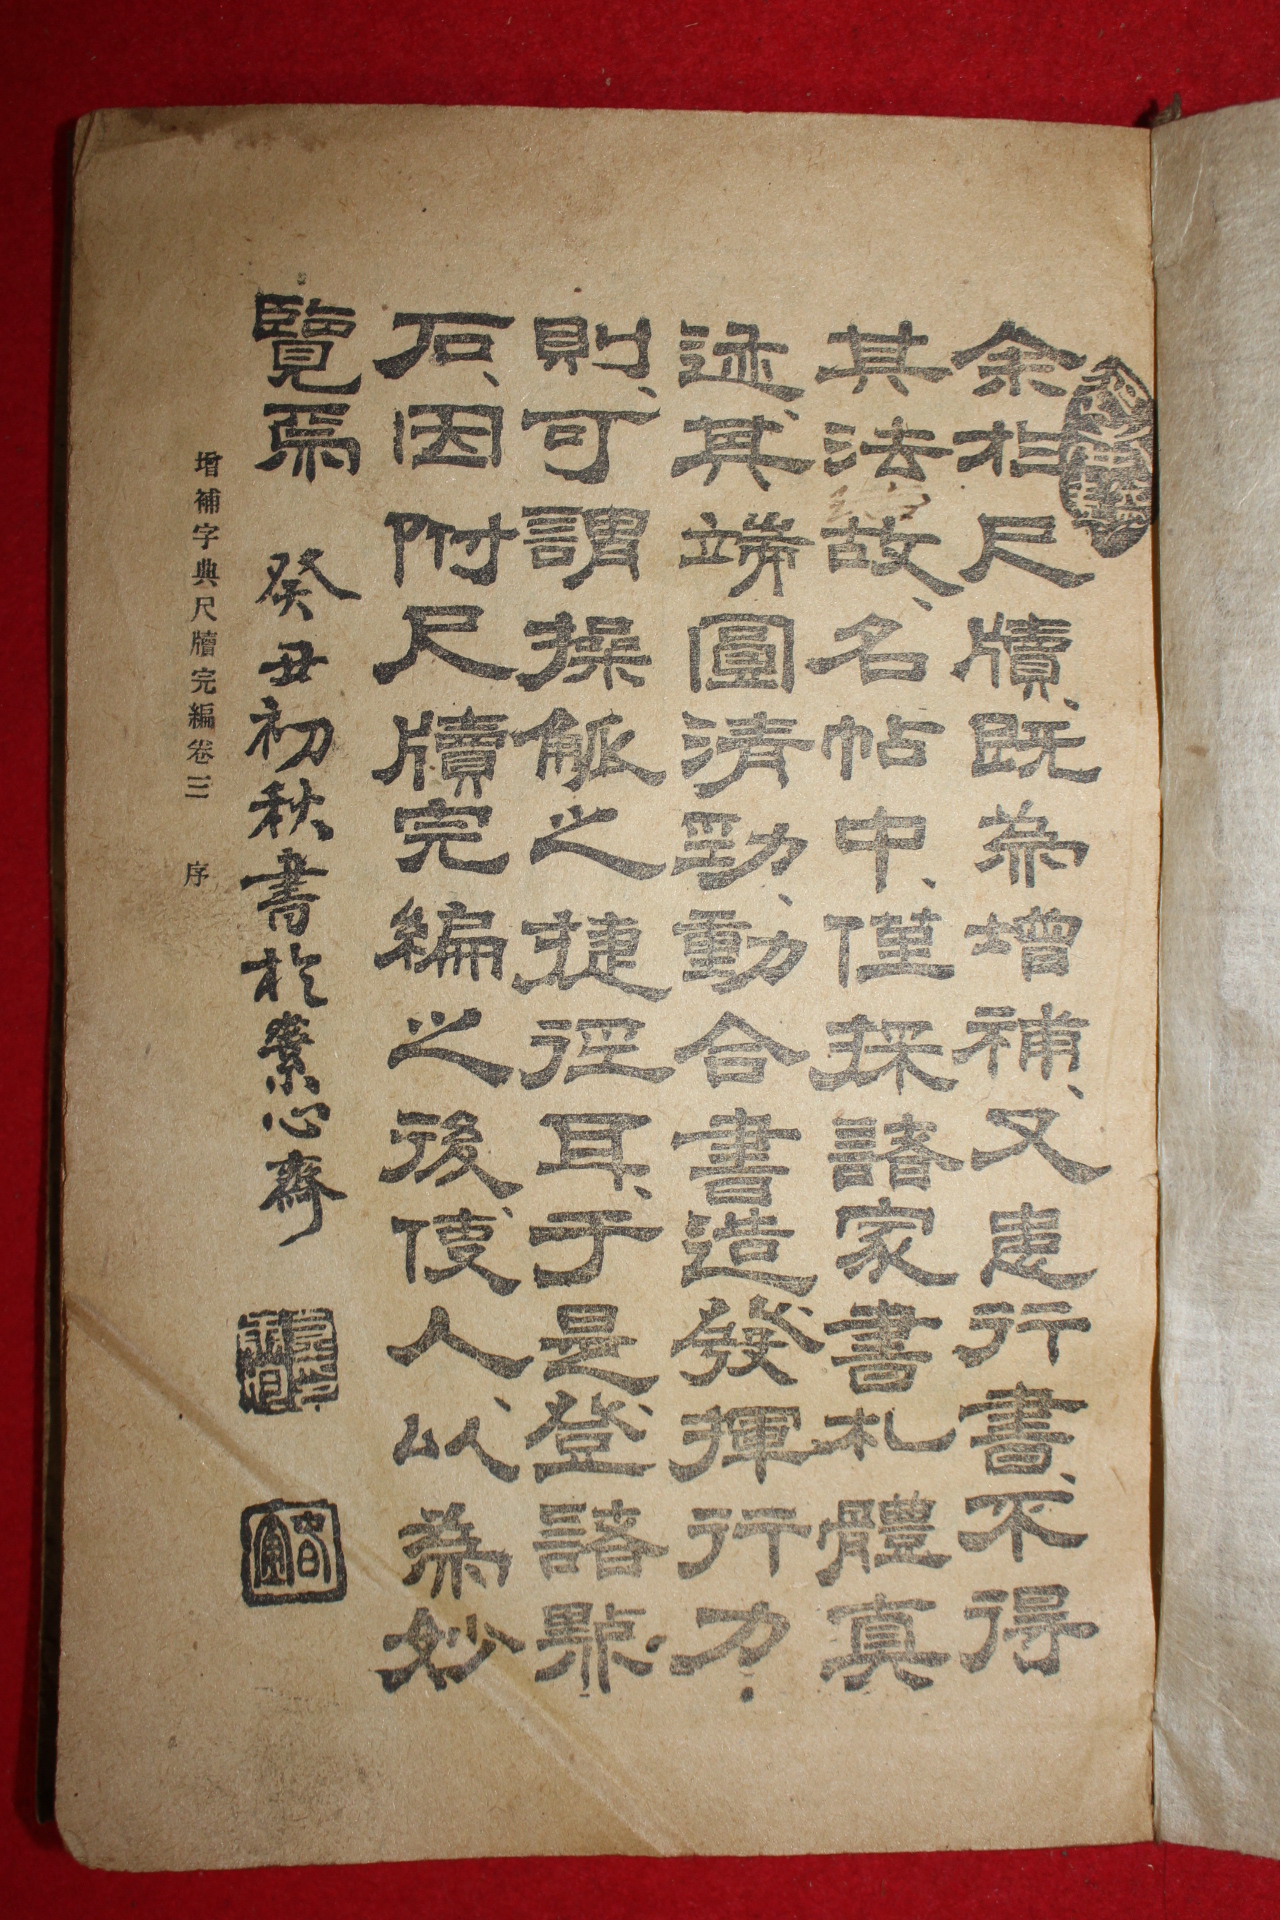 余於尺牘、既為增補、又患行書、不得
其法故、名帖中、僅採諸家書札體真
迹、其端圓清勁、動合書造、發揮行力、
則、可謂操觚之捷徑耳、于是、登諸
石、因附尺牘完編之後、使人、以為妙
覽焉 癸丑初秋書於素心齋
增補字典尺牘完編卷三 序